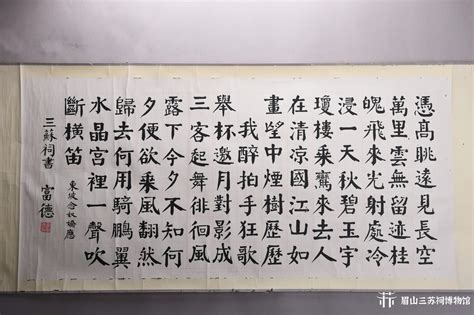 憑高眺遠見長空
萬里雲無留迹桂
魄飛來光射處冷
浸一天秋碧玉宇
瓊樓乘鸞來去人
在清凉國江山如
畫望中煙樹歷歷
我醉拍手狂歌
舉杯邀月對影成
三客起舞徘徊風
露下今夕不知何
夕便欲乘風翻然
歸去何用騎鵬翼
水晶宮裡一聲吹
斷橫笛
東坡念奴嬌應
三蘇祠書 富德
眉山三苏祠博物馆